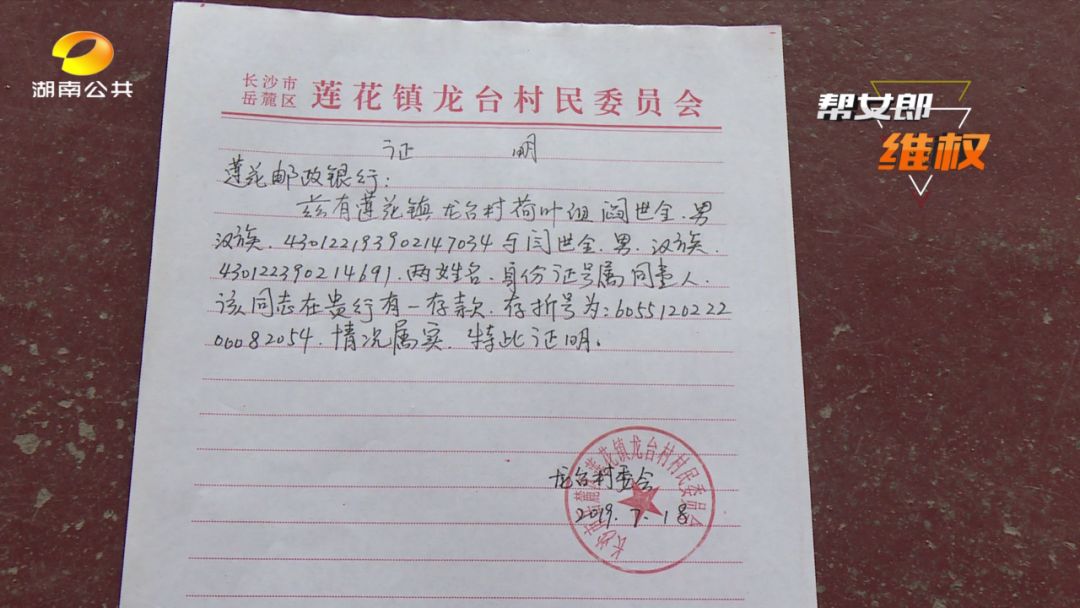 湖南公共
帮女郎
维权
长沙市
岳麓区
莲花镇龙台村民委员会
证 明
莲花邮政银行:
兹有莲花镇龙台村荷叶组阎世全.男
汉族.430122193902147034与闫世全.男.汉族.
430122390214691.两姓名.身份证号属同壹人.
该同志在贵行有一存款.存折号为:605512022
200082054.情况属实.特此证明.
龙台村委会
2019.7.18